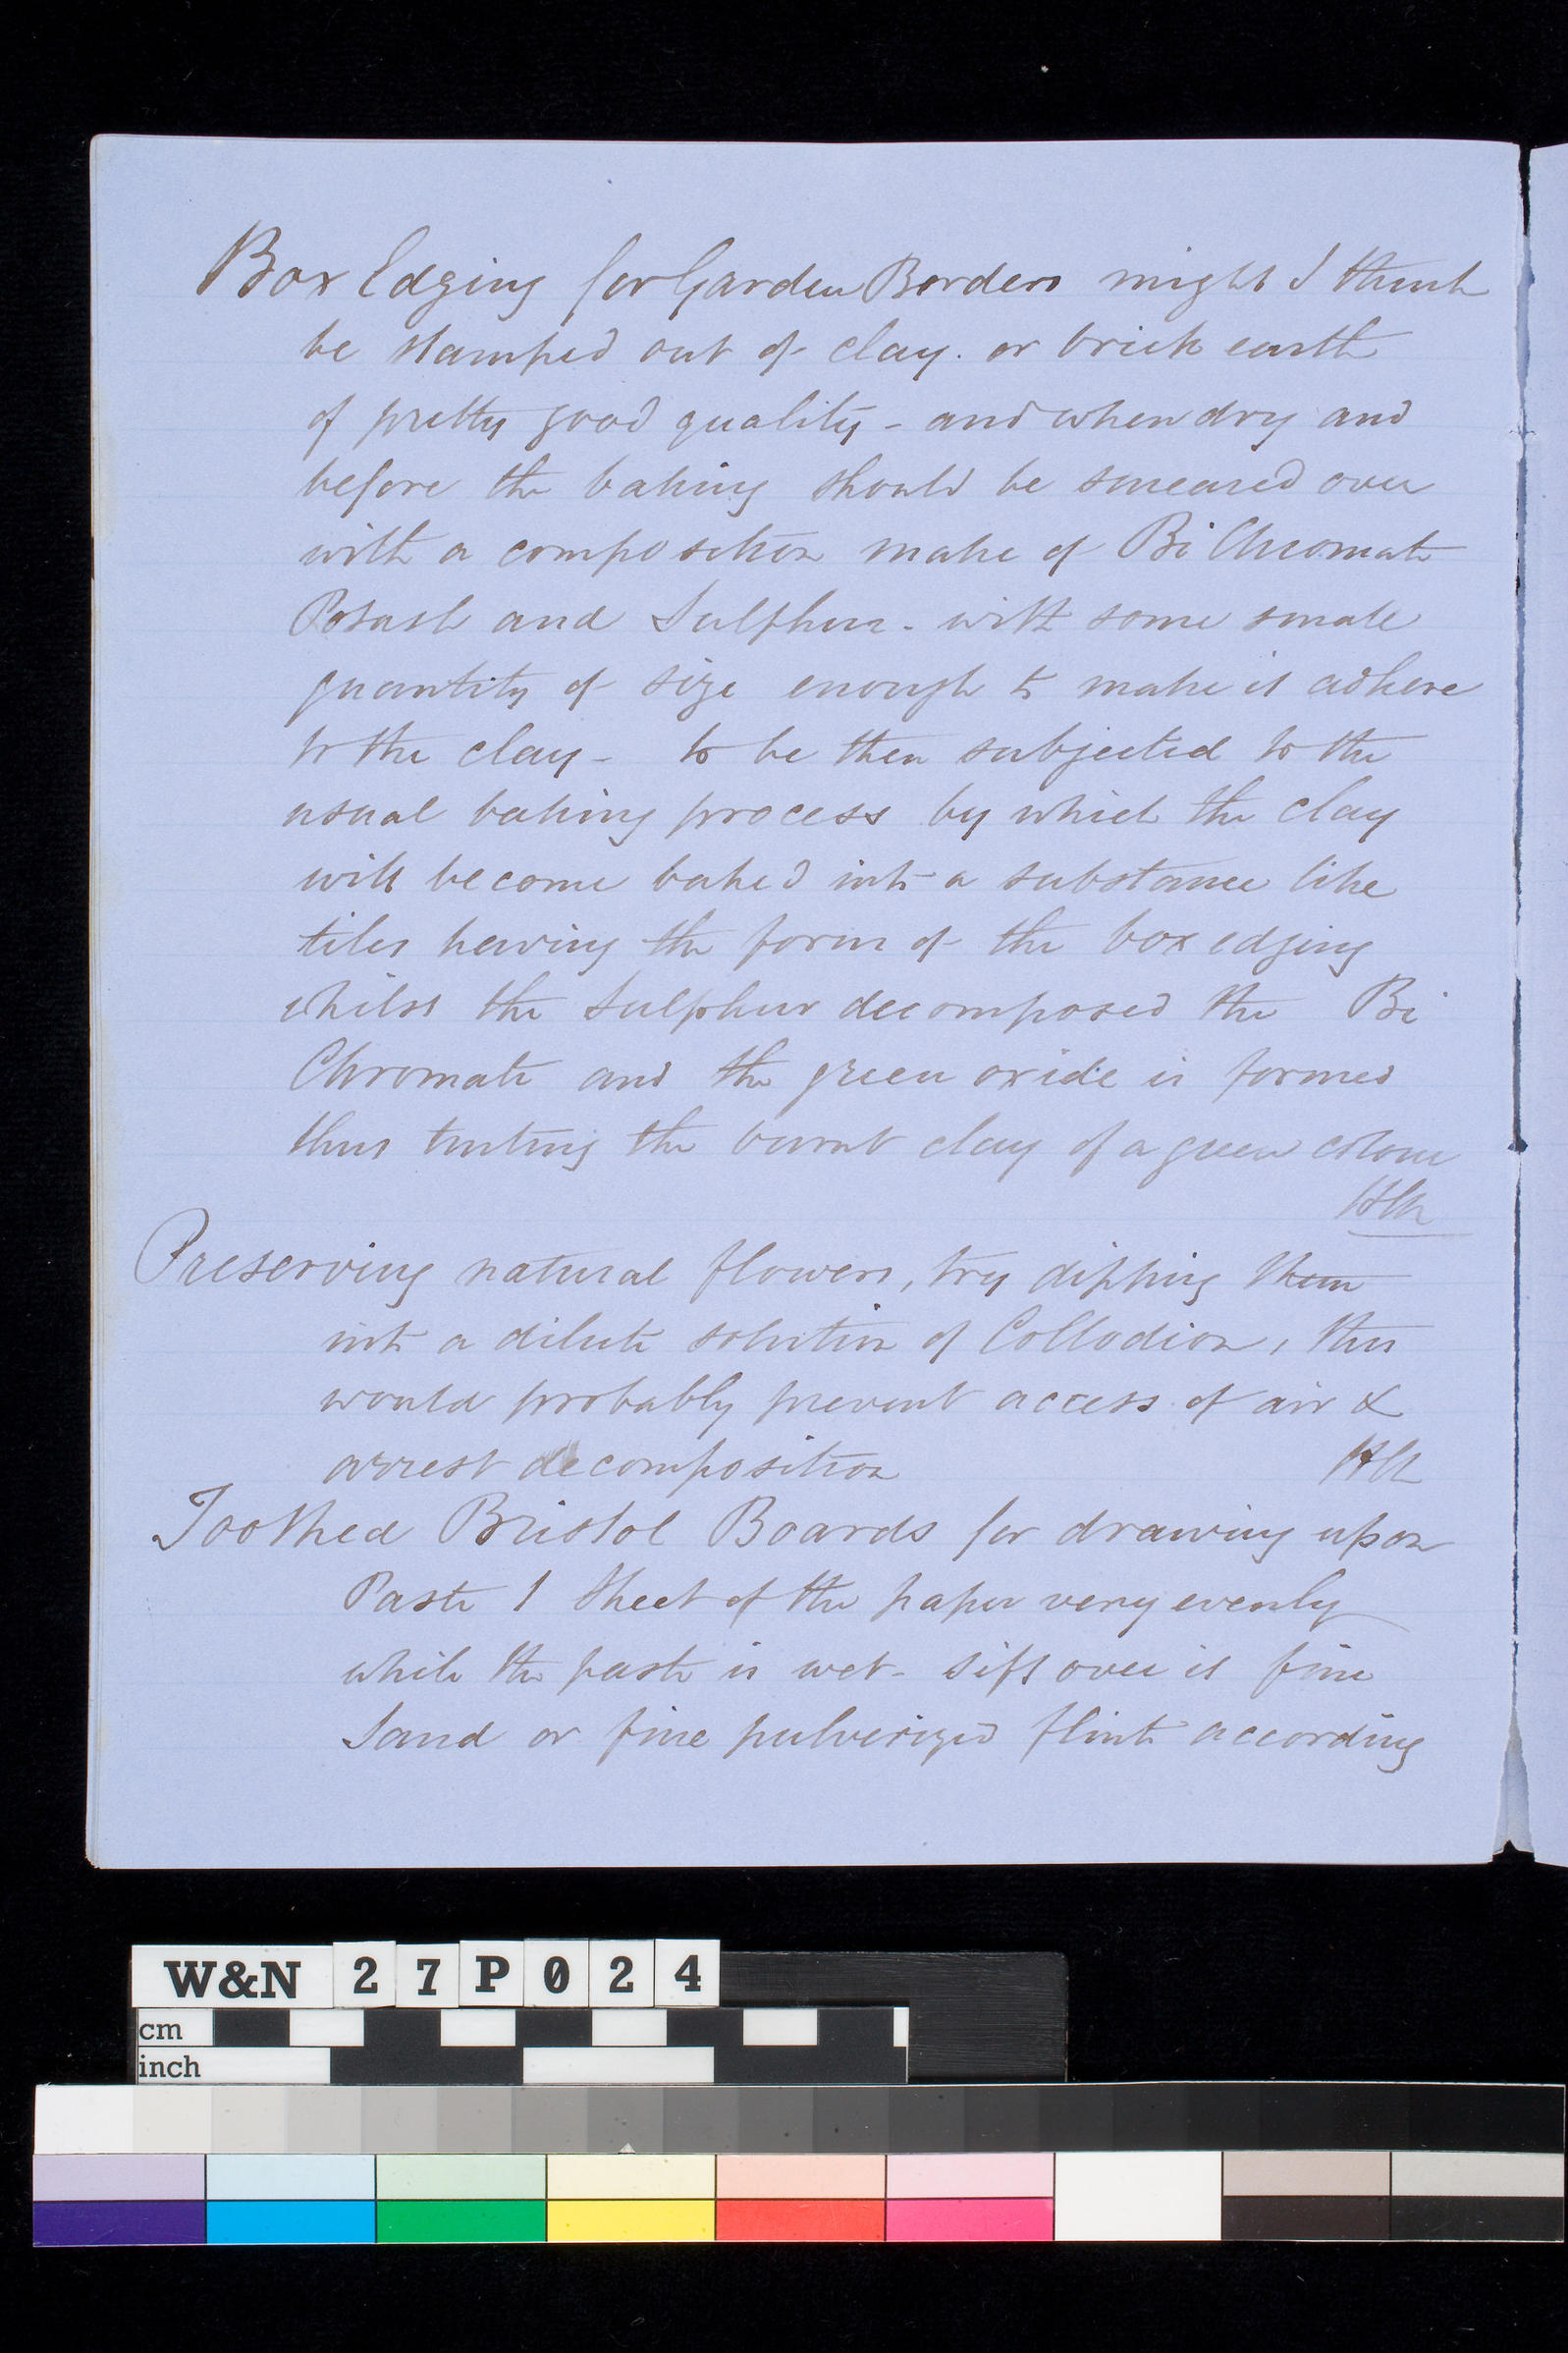 Box Edging for Garden Borders might I think
be stamped out of clay. or brick earth
of pretty good quality - and when dry and
before the baking should be smeared over
with a composition make of Bi Chromate
Potash and Sulphur - with some small
quantity of size enough to make it adhere
to the clay - to be then subjected to the
usual baking process by which the clay
will become baked into a substance like
tiles having the form of the box edging
whilst the Sulphur decomposed the Bi
Chromate and the green oxide is formed
thus tinting the burnt clay of a green colour
Preserving natural flowers, try dipping them
into a dilute solution of Collodion, this
would probably prevent access of air &
arrest decomposition
Toothed Bristol Boards for drawing upon
Paste 1 sheet of the paper very evenly
while the paste is wet - sift over it fine
Sand or fine pulverized flint according
W&N 27P024
cm
inch